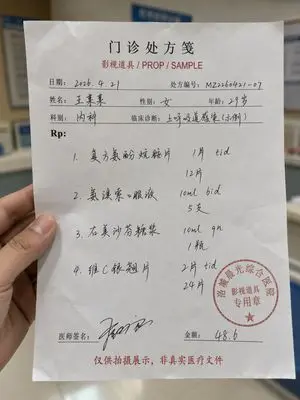 门诊处方笺
影视道具 / PROP / SAMPLE
日期: 2026.4.21 处方编号: MZ2260421-07
姓名: 王某某 性别: 女 年龄: 29岁
科别: 内科 临床诊断: 上呼吸道感染(示例)
Rp:
1. 复方氨酚烷胺片 1片 tid
12片
2. 氨溴索口服液 10ml bid
5支
3. 右美沙芬糖浆 10ml qn
1瓶
4. 维C银翘片 2片 tid
24片
洛城晨光综合医院
影视道具
专用章
医师签名: 金额: 48.6
仅供拍摄展示，非真实医疗文件